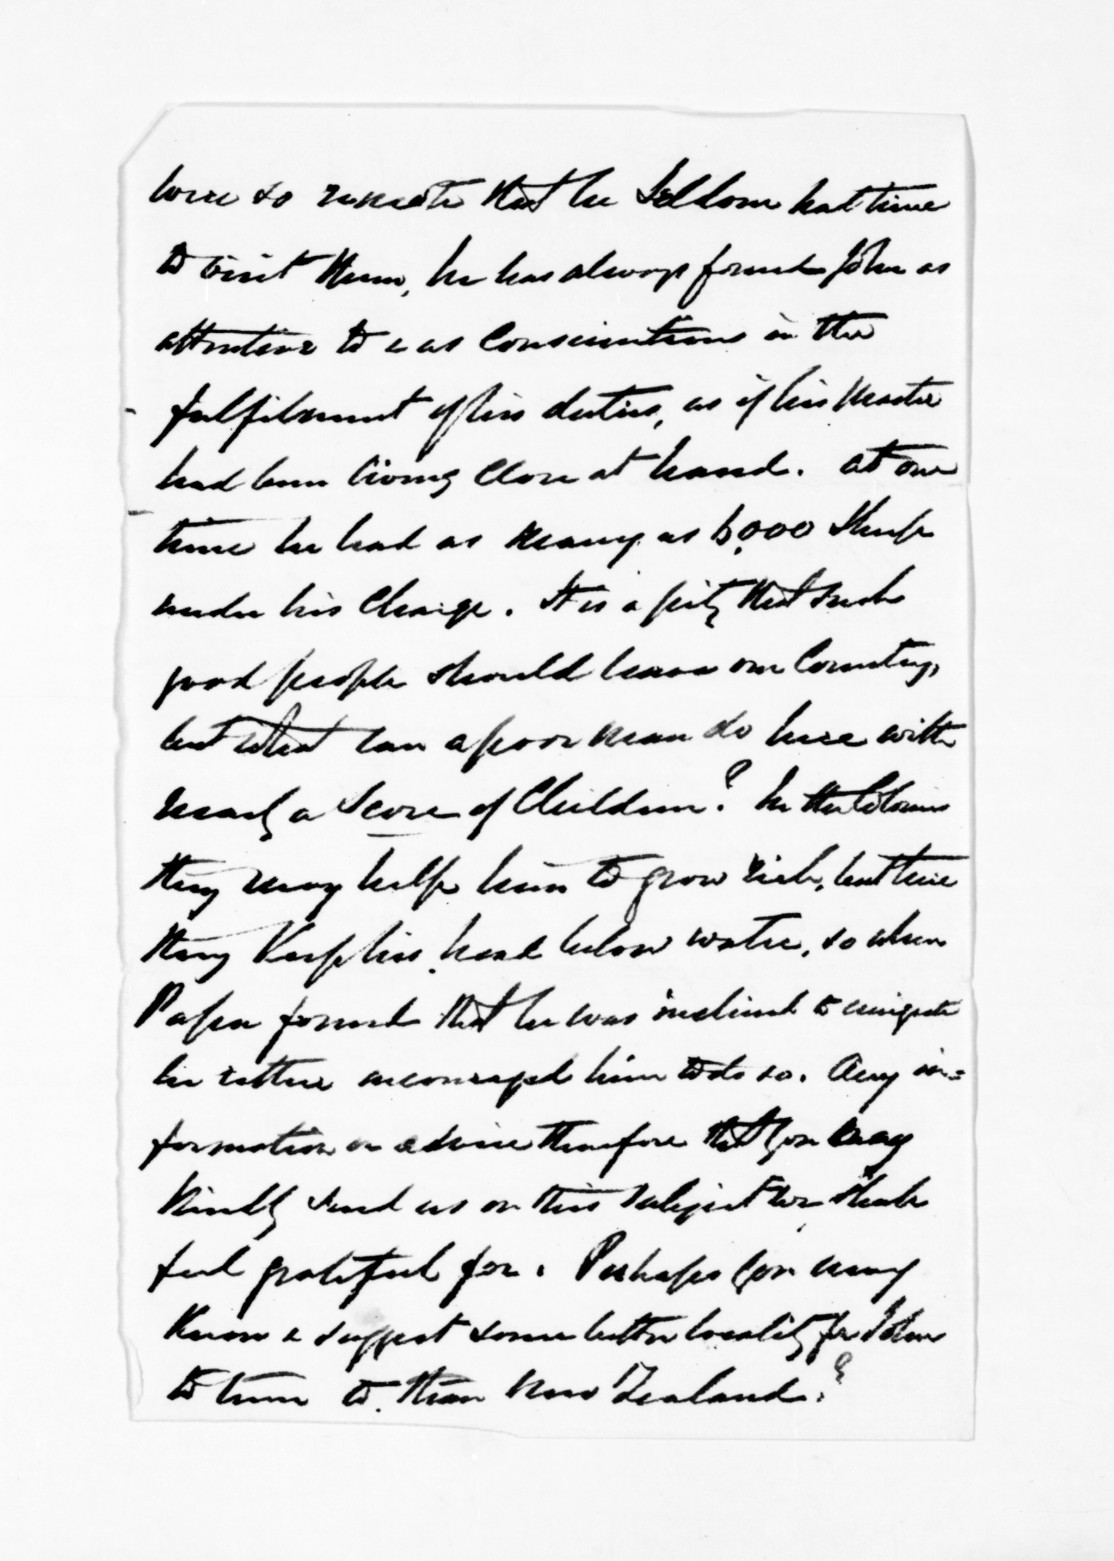 were so remote that he seldom had time
to visit them, he has always found John as
attentive to & as conscientious in the
fulfilment of his duties, as if his Master
had been living close at hand. At one
time he had as many as 6,000 Sheep
under his Charge. It is a pity that such
good people should leave our Country,
but what can a poor man do here with
nearly a Score of Children? In the Colonies
they may help him to grow rich, but here
they Keep his head below water, so when
Papa found that he was inclined to emigrate
he rather encouraged him to do so. Any in=
formation or advice therefore that you may
Kindly send us on this subject we shall
feel grateful for. Perhaps you may
Know & suggest some better locality for John
to turn to than New Zealand?